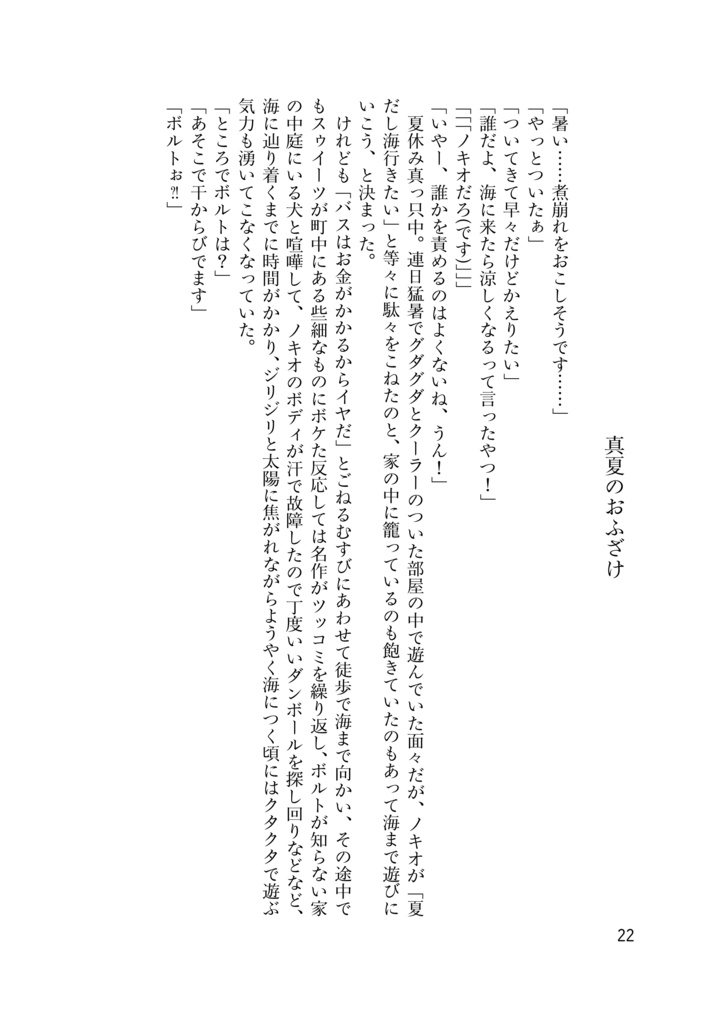 真夏のおふざけ
「暑い……煮崩れをおこしそうです……」
「やっとついたぁ」
「ついてきて早々だけどかえりたい」
「誰だよ、海に来たら涼しくなるって言ったやつ！」
「「「ノキオだろ(です)」」」
「いやー、誰かを責めるのはよくないね、うん！」
　夏休み真っ只中。連日猛暑でグダグダとクーラーのついた部屋の中で遊んでいた面々だが、ノキオが「夏
だし海行きたい」と等々に駄々をこねたのと、家の中に籠っているのも飽きていたのもあって海まで遊びに
いこう、と決まった。
　けれども「バスはお金がかかるからイヤだ」とごねるむすびにあわせて徒歩で海まで向かい、その途中で
もスゥイーツが町中にある些細なものにボケた反応しては名作がツッコミを繰り返し、ボルトが知らない家
の中庭にいる犬と喧嘩して、ノキオのボディが汗で故障したので丁度いいダンボールを探し回りなどなど、
海に辿り着くまでに時間がかかり、ジリジリと太陽に焦がれながらようやく海につく頃にはクタクタで遊ぶ
気力も湧いてこなくなっていた。
「ところでボルトは？」
「あそこで干からびでます」
「ボルトぉ⁈」
22